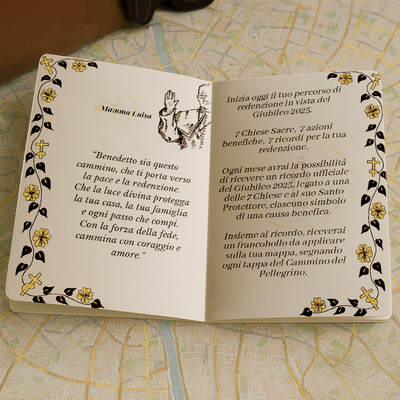 Mamma Luisa
"Benedetto sia questo
cammino, che ti porta verso
la pace e la redenzione.
Che la luce divina protegga
la tua casa, la tua famiglia
e ogni passo che compi.
Con la forza della fede,
cammina con coraggio e
amore."
Inizia oggi il tuo percorso di
redenzione in vista del
Giubileo 2025.
7 Chiese Sacre, 7 azioni
benefiche, 7 ricordi per la tua
redenzione.
Ogni mese avrai la possibilità
di ricevere un ricordo ufficiale
del Giubileo 2025, legato a una
delle 7 Chiese e al suo Santo
Protettore, ciascuno simbolo
di una causa benefica.
Insieme al ricordo, riceverai
un francobollo da applicare
sulla tua mappa, segnando
ogni tappa del Cammino del
Pellegrino.